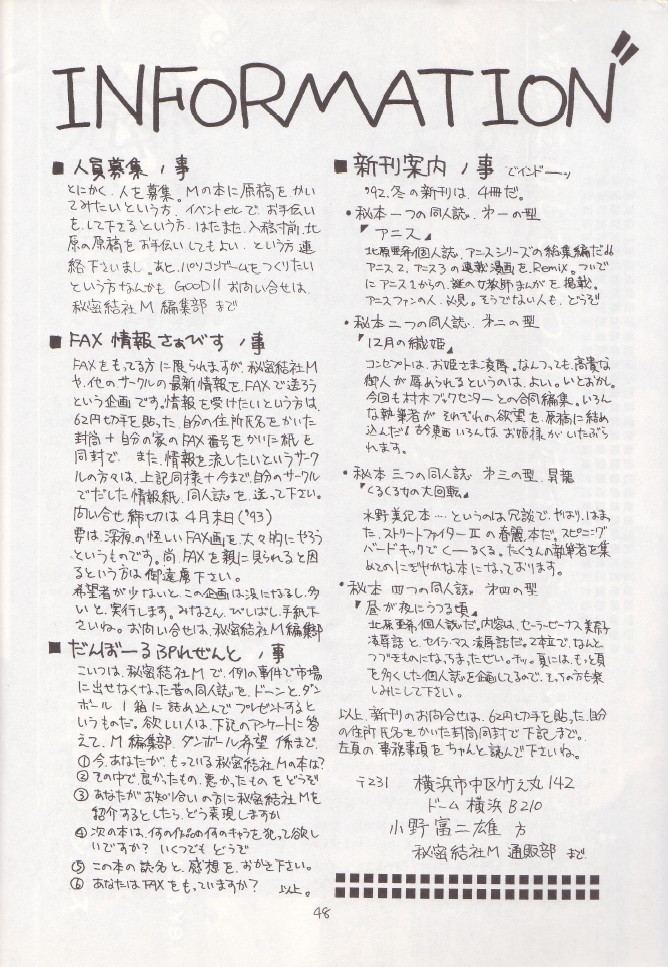 INFORMATION"
■ 人員募集ノ事
とにかく、人を募集。Mの本に原稿を、かい
てみたいという方、イベントetcで、お手伝い
を、して下さるという方、はたまた、入稿寸前、北
原の原稿をお手伝いしてもよい、という方、連
絡下さいまし。あと、パソコンゲームをつくりたい
という方なんかも GOOD!! お問い合せは、
秘密結社M 編集部 まで
■ FAX 情報さぁびすノ事
FAXをもってる方に限られますが、秘密結社M
や、他のサークルの最新情報を、FAXで送ろう
という企画です。情報を受けたいという方は、
62円切手を貼った、自分の住所氏名をかいた
封筒+自分の家のFAX番号をかいた紙を
同封で、また、情報を流したいというサーク
ルの方々は、上記同様+今まで、自分のサークル
でだした情報紙、同人誌を、送って下さい。
問い合せ締切は4月末日('93)
要は、深夜の怪しいFAX画を、大々的にやろう
というものです。尚、FAXを親に見られると困
るという方は御遠慮下さい。
希望者が少ないと、この企画は没になるし、多
いと、実行します。みなさん、びしばし、手紙下
さいね。お問い合せは、秘密結社M編集部
■ だんぼーるぷれぜんとノ事
こいつは、秘密結社Mで、例の事件で市場
に出せなくなった昔の同人誌を、ドーンと、ダン
ボール1箱に詰め込んでプレゼントすると
いうものだ。欲しい人は、下記のアンケートに答
えて、M編集部、ダンボール希望係まで。
①今、あなたが、もっている秘密結社Mの本は?
②その中で、良かったもの、悪かったものをどうぞ
③あなたがお知り合いの方に秘密結社Mを
紹介するとしたら、どう表現しますか
④次の本は、何の作品の何のキャラを犯って欲し
いですか? いくつでもどうぞ
⑤この本の誌名と、感想を、おかき下さい。
⑥あなたはFAXをもっていますか? 以上。
■ 新刊案内ノ事 でインドーッ
'92.冬の新刊は、4冊だ。
・秘本一つの同人誌、第一の型
『アニス』
北原亜希個人誌、アニスシリーズの総集編だ。
アニス2、アニス3の連載漫画を、Remix。ついで
にアニス1からの、謎の女教師まんがを掲載。
アニスファンの人、必見。そうでない人も、どうぞ
・秘本二つの同人誌、第二の型
『12月の織姫』
コンセプトは、お姫さま凌辱。なんつっても、高貴な
御人が辱められるというのは、よい。いとおかし。
今回も村木ブックセンターとの合同編集。いろん
な執筆者が、それぞれの欲望を、原稿に詰め
込んだ!古今東西いろんなお姫様がいたぶら
れます。
・秘本三つの同人誌、第三の型、昇龍
『くるくる女の大回転』
水野美妃本…というのは冗談で、やはり、はま
た、ストリートファイターIIの春麗本だ。スピニング
バードキックでくーるくる。たくさんの執筆者を集
めてのにぎやかな本になっております。
・秘本四つの同人誌、第四の型
『昼が夜にうつる頃』
北原亜希個人誌だ。内容は、セーラービーナス美奈子
凌辱話と、セイラ・マス凌辱話だ。2本立で、なんと
つづきものになっちまったぜい。ナッ。夏には、もっと頁
を多くした個人誌を企画してるので、そっちの方も楽
しみにして下さい。
以上、新刊のお問合せは、62円切手を貼った、自分
の住所氏名をかいた封筒同封で下記まで。
左頁の事務事項をちゃんと読んで下さいね。
〒231 横浜市中区竹之丸142
ドーム横浜B210
小野富二雄 方
秘密結社M 通販部 まで
48